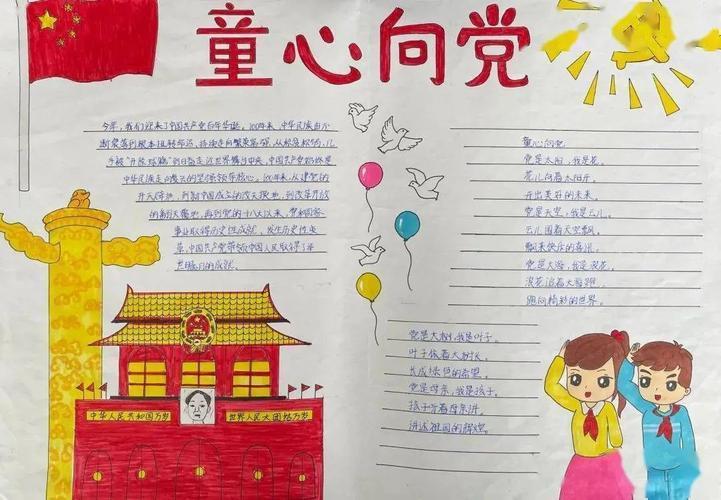 童心向党
今年,我们迎来了中国共产党百年华诞。100年来,中华民族由不
断衰落到根本扭转命运、持续走向繁荣富强,从积贫积弱,几
乎被"开除球籍"到日益走近世界舞台中央,中国共产党始终是
中华民族走向复兴的坚强领导核心。100年来,从建党的
开天辟地,到新中国成立的改天换地,到改革开放
的翻天覆地,再到党的十八大以来,党和国家
事业取得历史性成就、发生历史性变
革,中国共产党带领中国人民取得了举
世瞩目的成就。
中华人民共和国万岁
世界人民大团结万岁
童心向党
党是太阳,我是花。
花儿向着太阳开。
开出美好的未来。
党是天空,我是云儿。
云儿围着天空飘。
飘来快乐的喜讯。
党是大海,我是浪花。
浪花追着大海跑。
跑向精彩的世界。
党是大树,我是叶子。
叶子依着大树长。
长成绿色的希望。
党是母亲,我是孩子。
孩子听着母亲讲。
讲述祖国的辉煌。